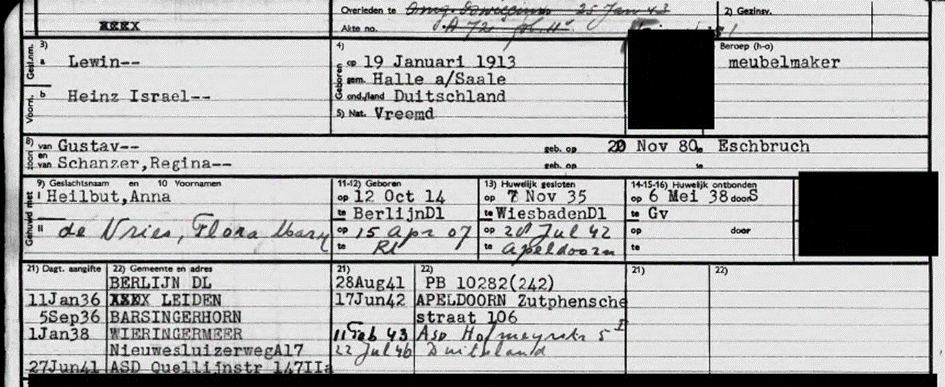 Overleden te Omg. 25 Jan 43 2) Gezinsv.
Akte no. A 72
3) 4) Beroep (h-o)
Gesl.nm. a Lewin-- Geboren op 19 Januari 1913 meubelmaker
gem. Halle a/Saale
Voorn. b Heinz Israel-- ond./land Duitschland
5) Nat. Vreemd
8) van Gustav-- geb. op 20 Nov 80 te Eschbruch
zoon en van Schanzer,Regina-- geb. op te
9) Geslachtsnaam en 10 Voornamen 11-12) Geboren 13) Huwelijk gesloten 14-15-16) Huwelijk ontbonden
Gehuwd met I Heilbut,Anna op 12 Oct 14 op 7 Nov 35 op 6 Mei 38 door S
te BerlijnDl te WiesbadenDl te Gv
II de Vries, Flora Mary op 15 Apr 07 op Jul 42 op door
te te Apeldoorn te
21) Dagt. aangifte 22) Gemeente en adres 21) 22) 21) 22)
BERLIJN DL 28Aug41 PB 10282(242)
11Jan36 LEIDEN 17Jun42 APELDOORN Zutphensche
5Sep36 BARSINGERHORN straat 106
1Jan38 WIERINGERMEER 11 Feb 43 Asd Hofmeyrstr 5 I
NieuwesluizerwegA17 22 Jul 46 Duitsland
27Jun41 ASD Quellijnstr 147IIa